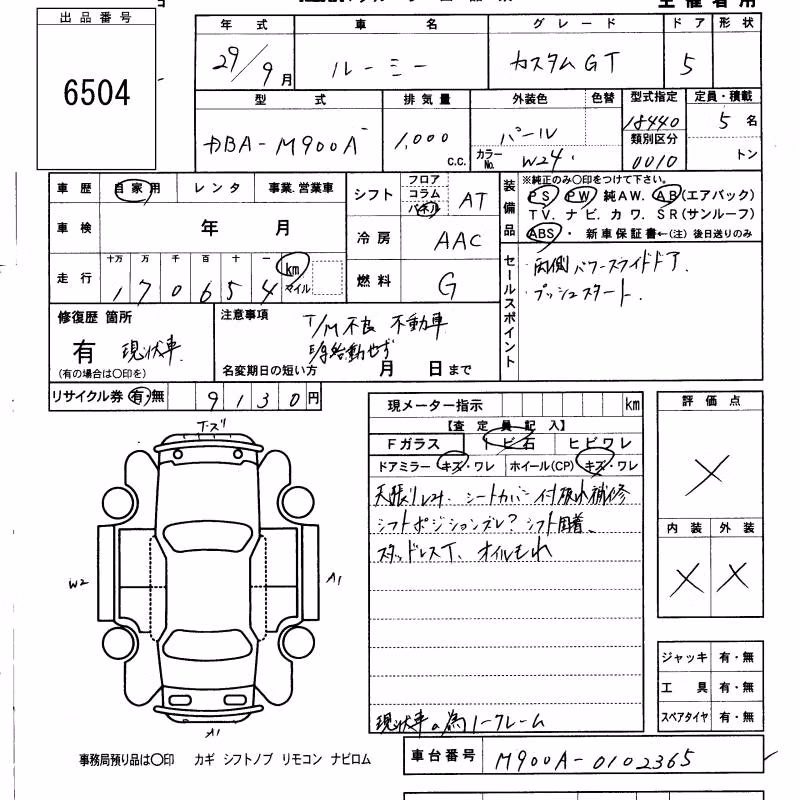 出品番号
6504
年式 車名 グレード ドア 形状
29/9月 ルーミー カスタムGT 5
型式 排気量 外装色 色替 型式指定 定員・積載
DBA-M900A 1,000 c.c. パール 18440 5名
カラーNo. W24 類別区分 0010 トン
車歴 自家用 レンタ 事業.営業車
シフト フロア コラム パネル AT
装備品 ※純正のみ〇印をつけて下さい。
PS PW 純AW. AB(エアバック)
TV. ナビ. カワ. SR(サンルーフ)
ABS・ 新車保証書←(注) 後日送りのみ
車検 年 月
冷房 AAC
走行 十万 万 千 百 十 一
170654 km マイル
燃料 G
セールスポイント
・両側パワースライドドア.
・プッシュスタート.
修復歴 箇所
有 現状車.
(有の場合は〇印を)
注意事項 T/M不良 不動車
名変期日の短い方 月 日まで
リサイクル券 有・無 9130円
現メーター指示 km
【査定員記入】
Fガラス トビ石 ヒビワレ
ドアミラー キズ・ワレ ホイール(CP) キズ・ワレ
シフトポジションズレ? シフト固着、
スタッドレスT、オイルもれ
現状車の為ノークレーム
評価点
×
内装 外装
× ×
ジャッキ 有・無
工具 有・無
スペアタイヤ 有・無
W2
A1
A1
事務局預り品は〇印 カギ シフトノブ リモコン ナビロム
車台番号 M900A-0102365